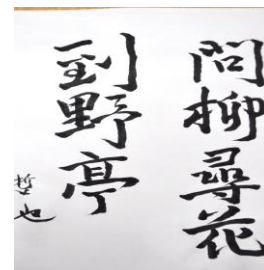 問柳尋花
到野亭
哲也